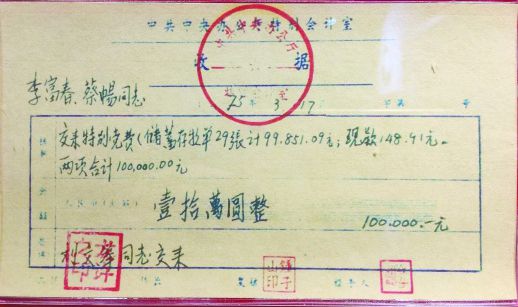 中共中央办公厅特别会计室
收 据
李富春、蔡畅同志
75年3月17
交来特别党费(储蓄存款单29张计99.851.09元;现款148.91元。
两项合计100,000.00元
壹拾萬圆整
100.000.一元
同志交来